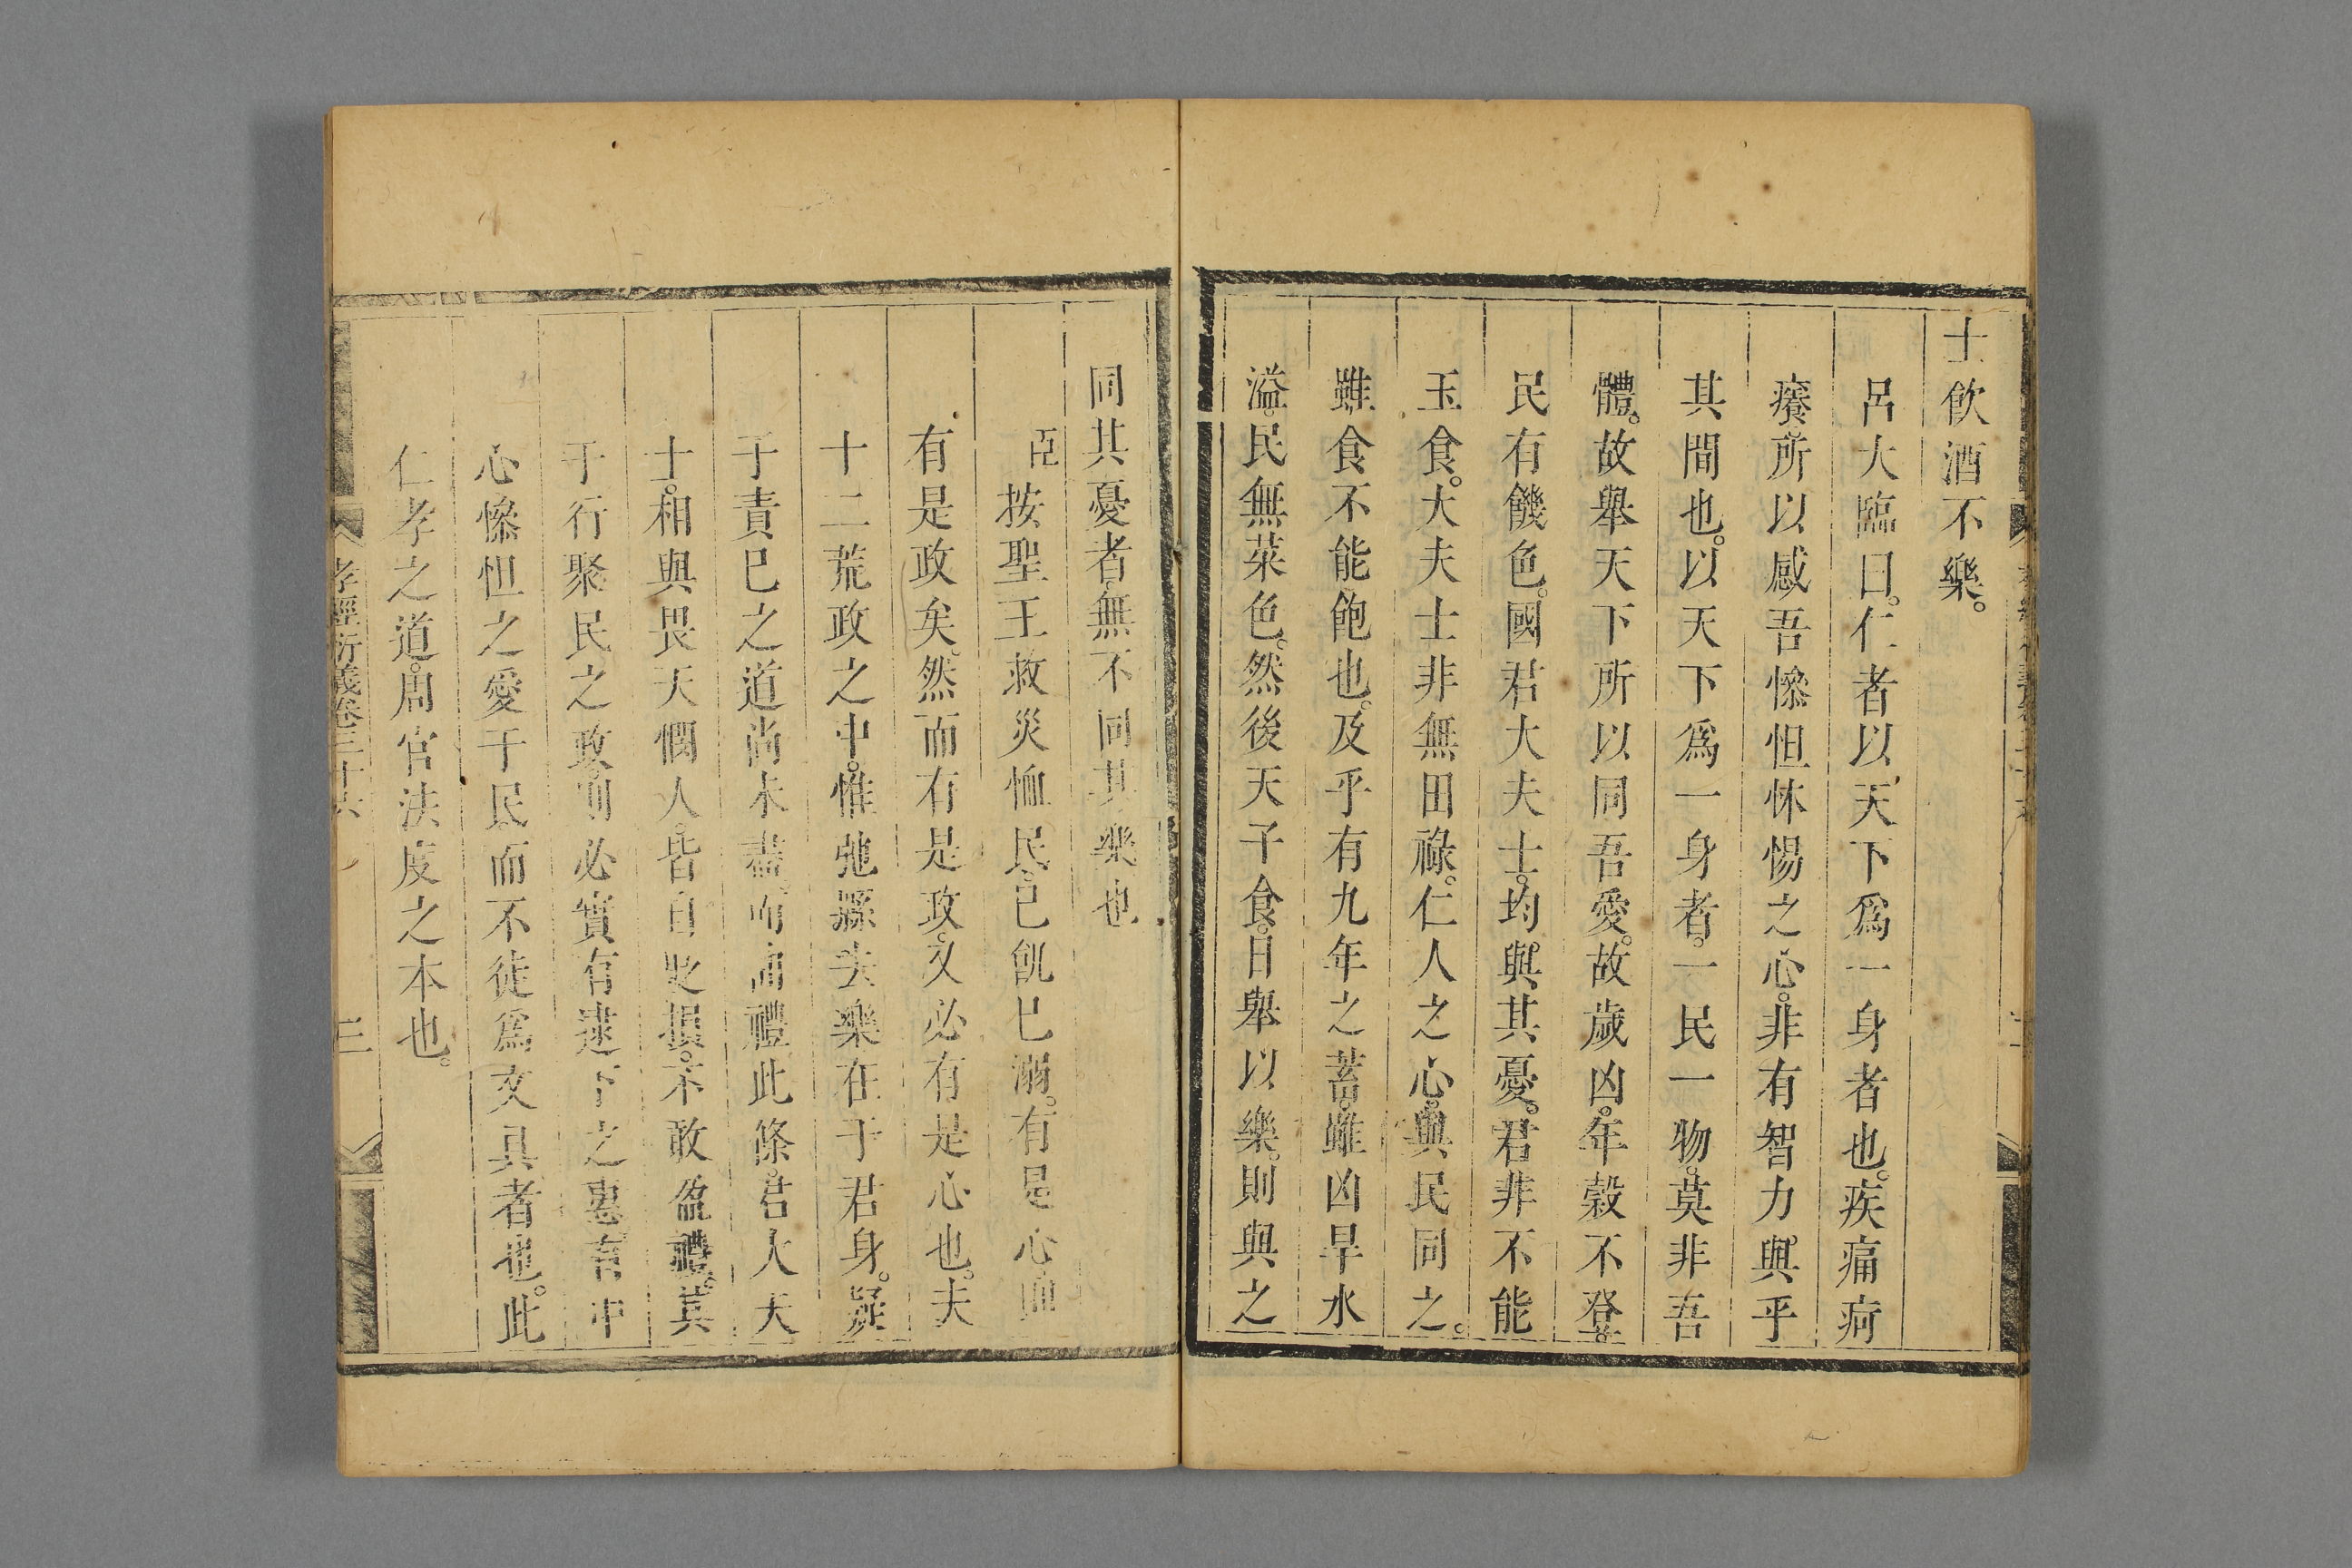 士飲酒不樂。
呂大臨曰。仁者以天下爲一身者也。疾痛疴
癢。所以感吾慘怛怵惕之心。非有智力與乎
其間也。以天下爲一身者。一民一物。莫非吾
體。故舉天下所以同吾愛。故歲凶。年穀不登。
民有饑色。國君大夫士。均與其憂。君非不能
玉食。大夫士非無田祿。仁人之心。與民同之。
雖食不能飽也。及乎有九年之蓄。雖凶旱水
溢。民無菜色。然後天子食。日舉以樂。則與之
同其憂者。無不同其樂也
臣按聖王救災恤民。己飢己溺。有是心而
有是政矣。然而有是政。又必有是心也。夫
十二荒政之中。惟弛縣去樂在于君身。疑
于責己之道尚未盡。曲禮此條。君大夫
士。相與畏天憫人。皆自貶損。不敢盈禮。其
于行聚民之政。則必實有逮下之惠。有中
心慘怛之愛于民。而不徒爲文具者也。此
仁孝之道。周官法度之本也。
孝經衍義卷三十六
三